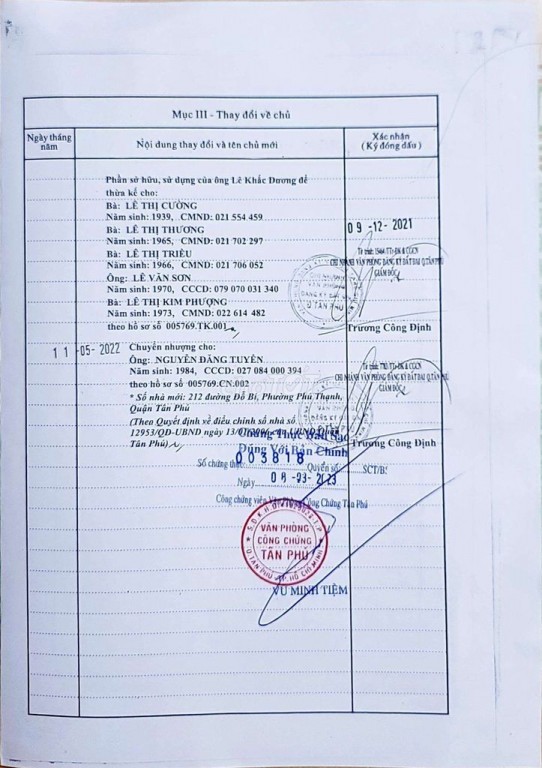 Mục III - Thay đổi về chủ
Ngày tháng năm
Nội dung thay đổi và tên chủ mới
Xác nhận
( Ký đóng dấu )
Phần sở hữu, sử dụng của ông Lê Khắc Dương để
thừa kế cho:
Bà: LÊ THỊ CƯỜNG
Năm sinh: 1939, CMND: 021 554 459
Bà: LÊ THỊ THƯƠNG
Năm sinh: 1965, CMND: 021 702 297
Bà: LÊ THỊ TRIỀU
Năm sinh: 1966, CMND: 021 706 052
Ông: LÊ VĂN SƠN
Năm sinh: 1970, CCCD: 079 070 031 340
Bà: LÊ THỊ KIM PHƯỢNG
Năm sinh: 1973, CMND: 022 614 482
theo hồ sơ số 005769.TK.001
09-12-2021
CHI NHÁNH VĂN PHÒNG ĐĂNG KÝ ĐẤT ĐAI Q.TÂN PHÚ
GIÁM ĐỐC
Trương Công Định
11-05-2022
Chuyển nhượng cho:
Ông: NGUYỄN ĐĂNG TUYÊN
Năm sinh: 1984, CCCD: 027 084 000 394
theo hồ sơ số 005769.CN.002
* Số nhà mới: 212 đường Đỗ Bí, Phường Phú Thạnh,
Quận Tân Phú
(Theo Quyết định về điều chỉnh số nhà số
12953/QĐ-UBND ngày
Tân Phú)
CHI NHÁNH VĂN PHÒNG ĐĂNG KÝ ĐẤT ĐAI Q.TÂN PHÚ
GIÁM ĐỐC
Trương Công Định
Chứng Thực Bản Sao
Đúng Với Bản Chính
Số chứng thực 003818 Quyển số: SCT/BS
Ngày 08-03-2023
Công chứng viên Văn Phòng Công Chứng Tân Phú
VĂN PHÒNG
CÔNG CHỨNG
TÂN PHÚ
Q.TÂN PHÚ - TP. HỒ CHÍ MINH
VŨ MINH TIỆM